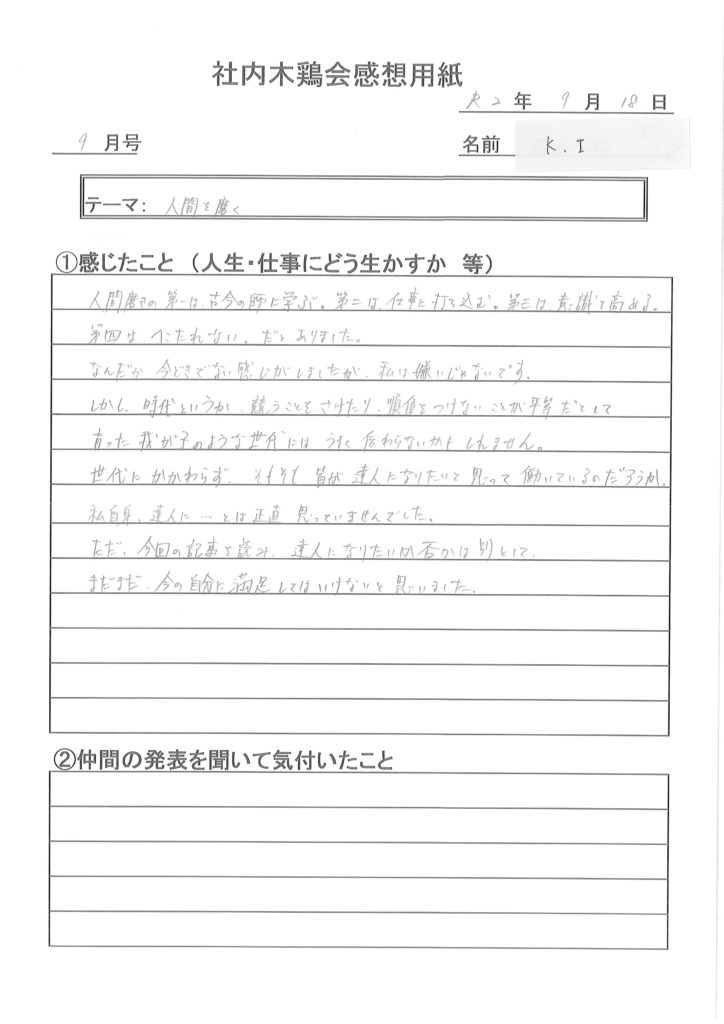 社内木鶏会感想用紙
R2年 9月 18日
9月号
名前 K.I
テーマ: 人間を磨く
①感じたこと (人生・仕事にどう生かすか 等)
人間磨きの第一は、古今の師に学ぶ。第二は、仕事に打ち込む。第三は、意識を高める。
第四は、へこたれない。だとありました。
なんだか 今どきでない感じがしましたが、私は嫌いじゃないです。
しかし、時代というか、競うことをさけたり、順位をつけないことが平等だとして
育った我が子のような世代には うまく伝わらないかもしれません。
世代にかかわらず、そもそも皆が達人になりたいと思って働いているのだろうか。
私自身、達人に…とは正直思っていませんでした。
ただ、今回の記事を読み、達人になりたいか否かは別として、
まだまだ、今の自分に満足してはいけないと思いました。
②仲間の発表を聞いて気付いたこと